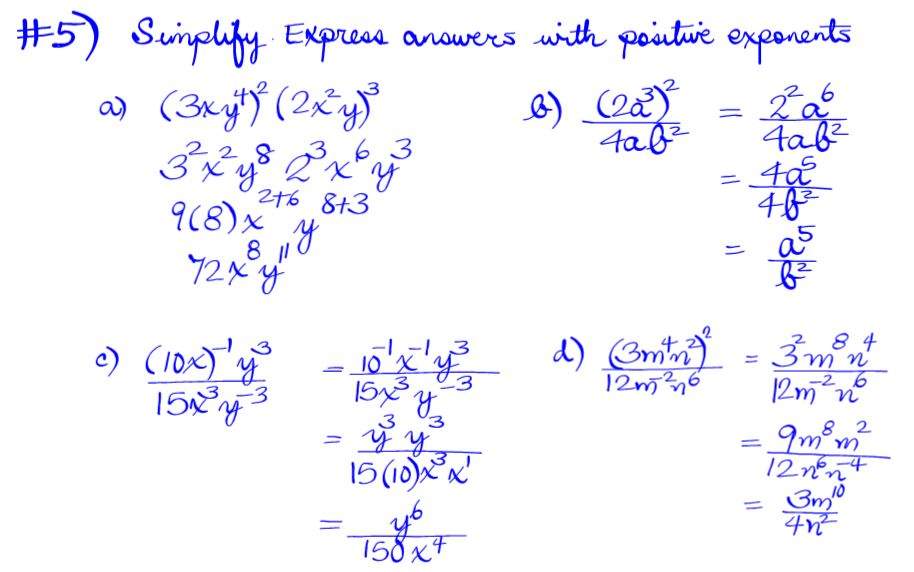 #5) Simplify. Express answers with positive exponents
a) (3xy⁴)² (2x²y)³
3²x²y⁸ 2³x⁶y³
9(8)x²⁺⁶ y⁸⁺³
72x⁸y¹¹
b) (2a³)²/4ab² = 2²a⁶/4ab²
= 4a⁵/4b²
= a⁵/b²
c) (10x)⁻¹y³/15x³y⁻³ = 10⁻¹x⁻¹y³/15x³y⁻³
= y³y³/15(10)x³x¹
= y⁶/150x⁴
d) (3m⁴n²)²/12m⁻²n⁶ = 3²m⁸n⁴/12m⁻²n⁶
= 9m⁸m²/12n⁶n⁻⁴
= 3m¹⁰/4n²